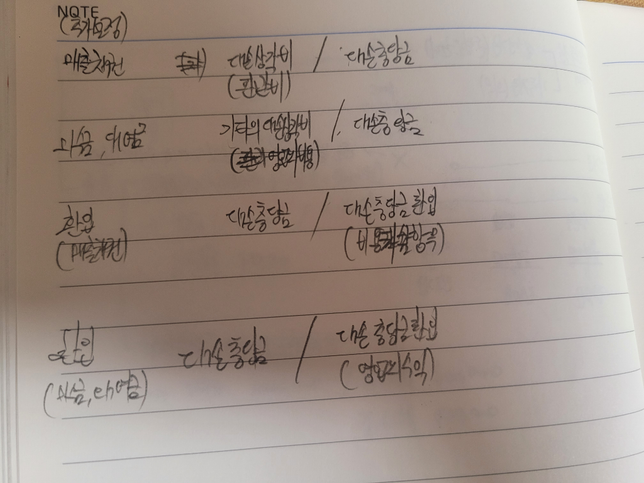 NOTE
(추가보정)
매출채권 대손상각비 / 대손충당금
(판관비)
미수금, 대여금 기타의 대손상각비 / 대손충당금
(영업외비용)
환입 대손충당금 / 대손충당금 환입
(매출채권) (비용차감항목)
환입 대손충당금 / 대손충당금환입
(미수금, 대여금) (영업외수익)